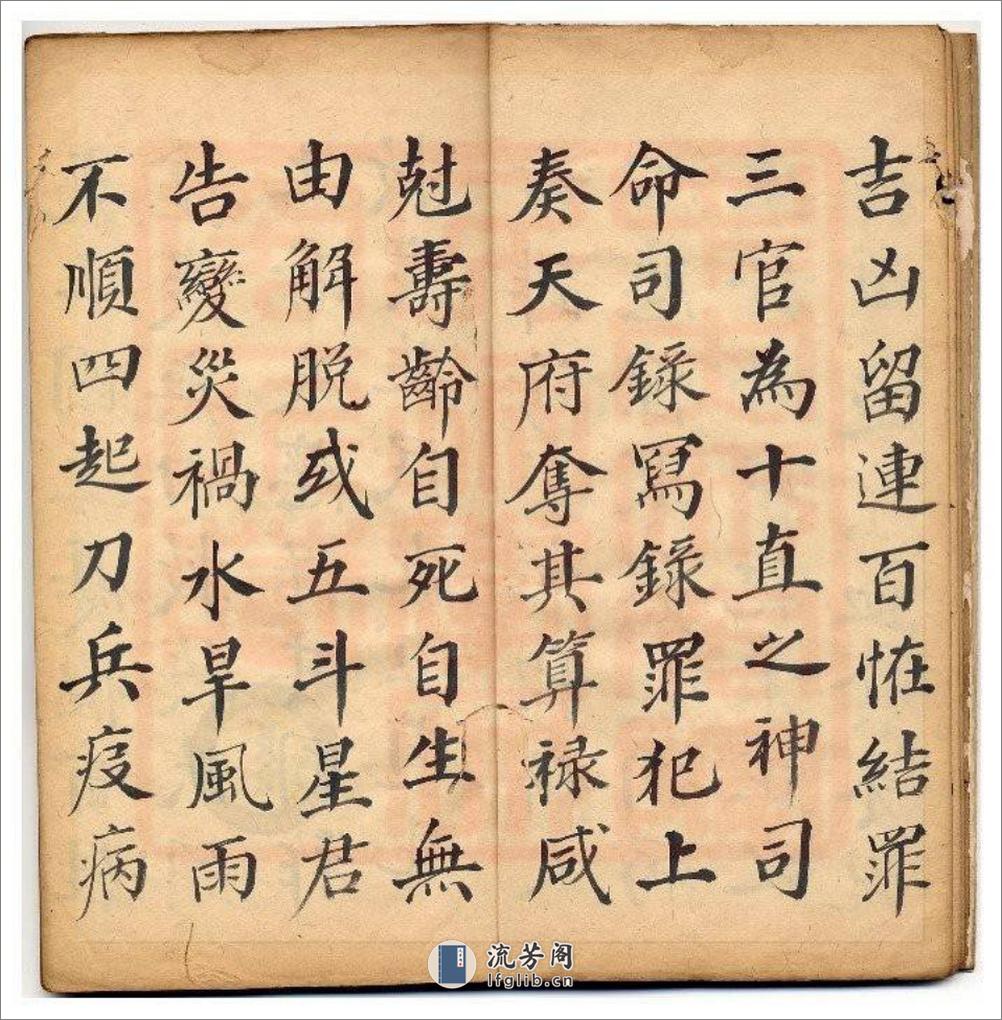 吉凶留連百恠結罪
三官為十直之神司
命司錄冩錄罪犯上
奏天府奪其算禄咸
尅壽齡自死自生無
由解脱或五斗星君
告變災禍水旱風雨
不順四起刀兵疫病
流芳阁
lfglib.cn